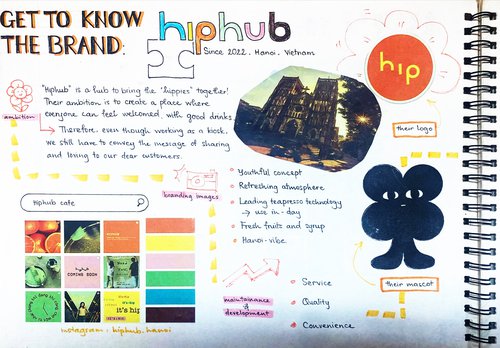 GET TO KNOW
THE BRAND:
hiphub
Since 2022. Hanoi, Vietnam
hip
their logo
"Hiphub" is a hub to bring the "hippies" together!
Their ambition is to create a place where
everyone can feel welcomed with good drinks
→ Therefore, even though working as a kiosk,
we still have to convey the message of sharing
and loving to our dear customers.
ambition
branding images
Youthful concept
Refreshing atmosphere
Leading teapresso technology
→ use in-day
Fresh fruits and syrup
Hanoi-vibe
their mascot
hiphub cafe
COMING SOON
it's hip
instagram: hiphub.hanoi
maintainance &
development
Service
Quality
Convenience